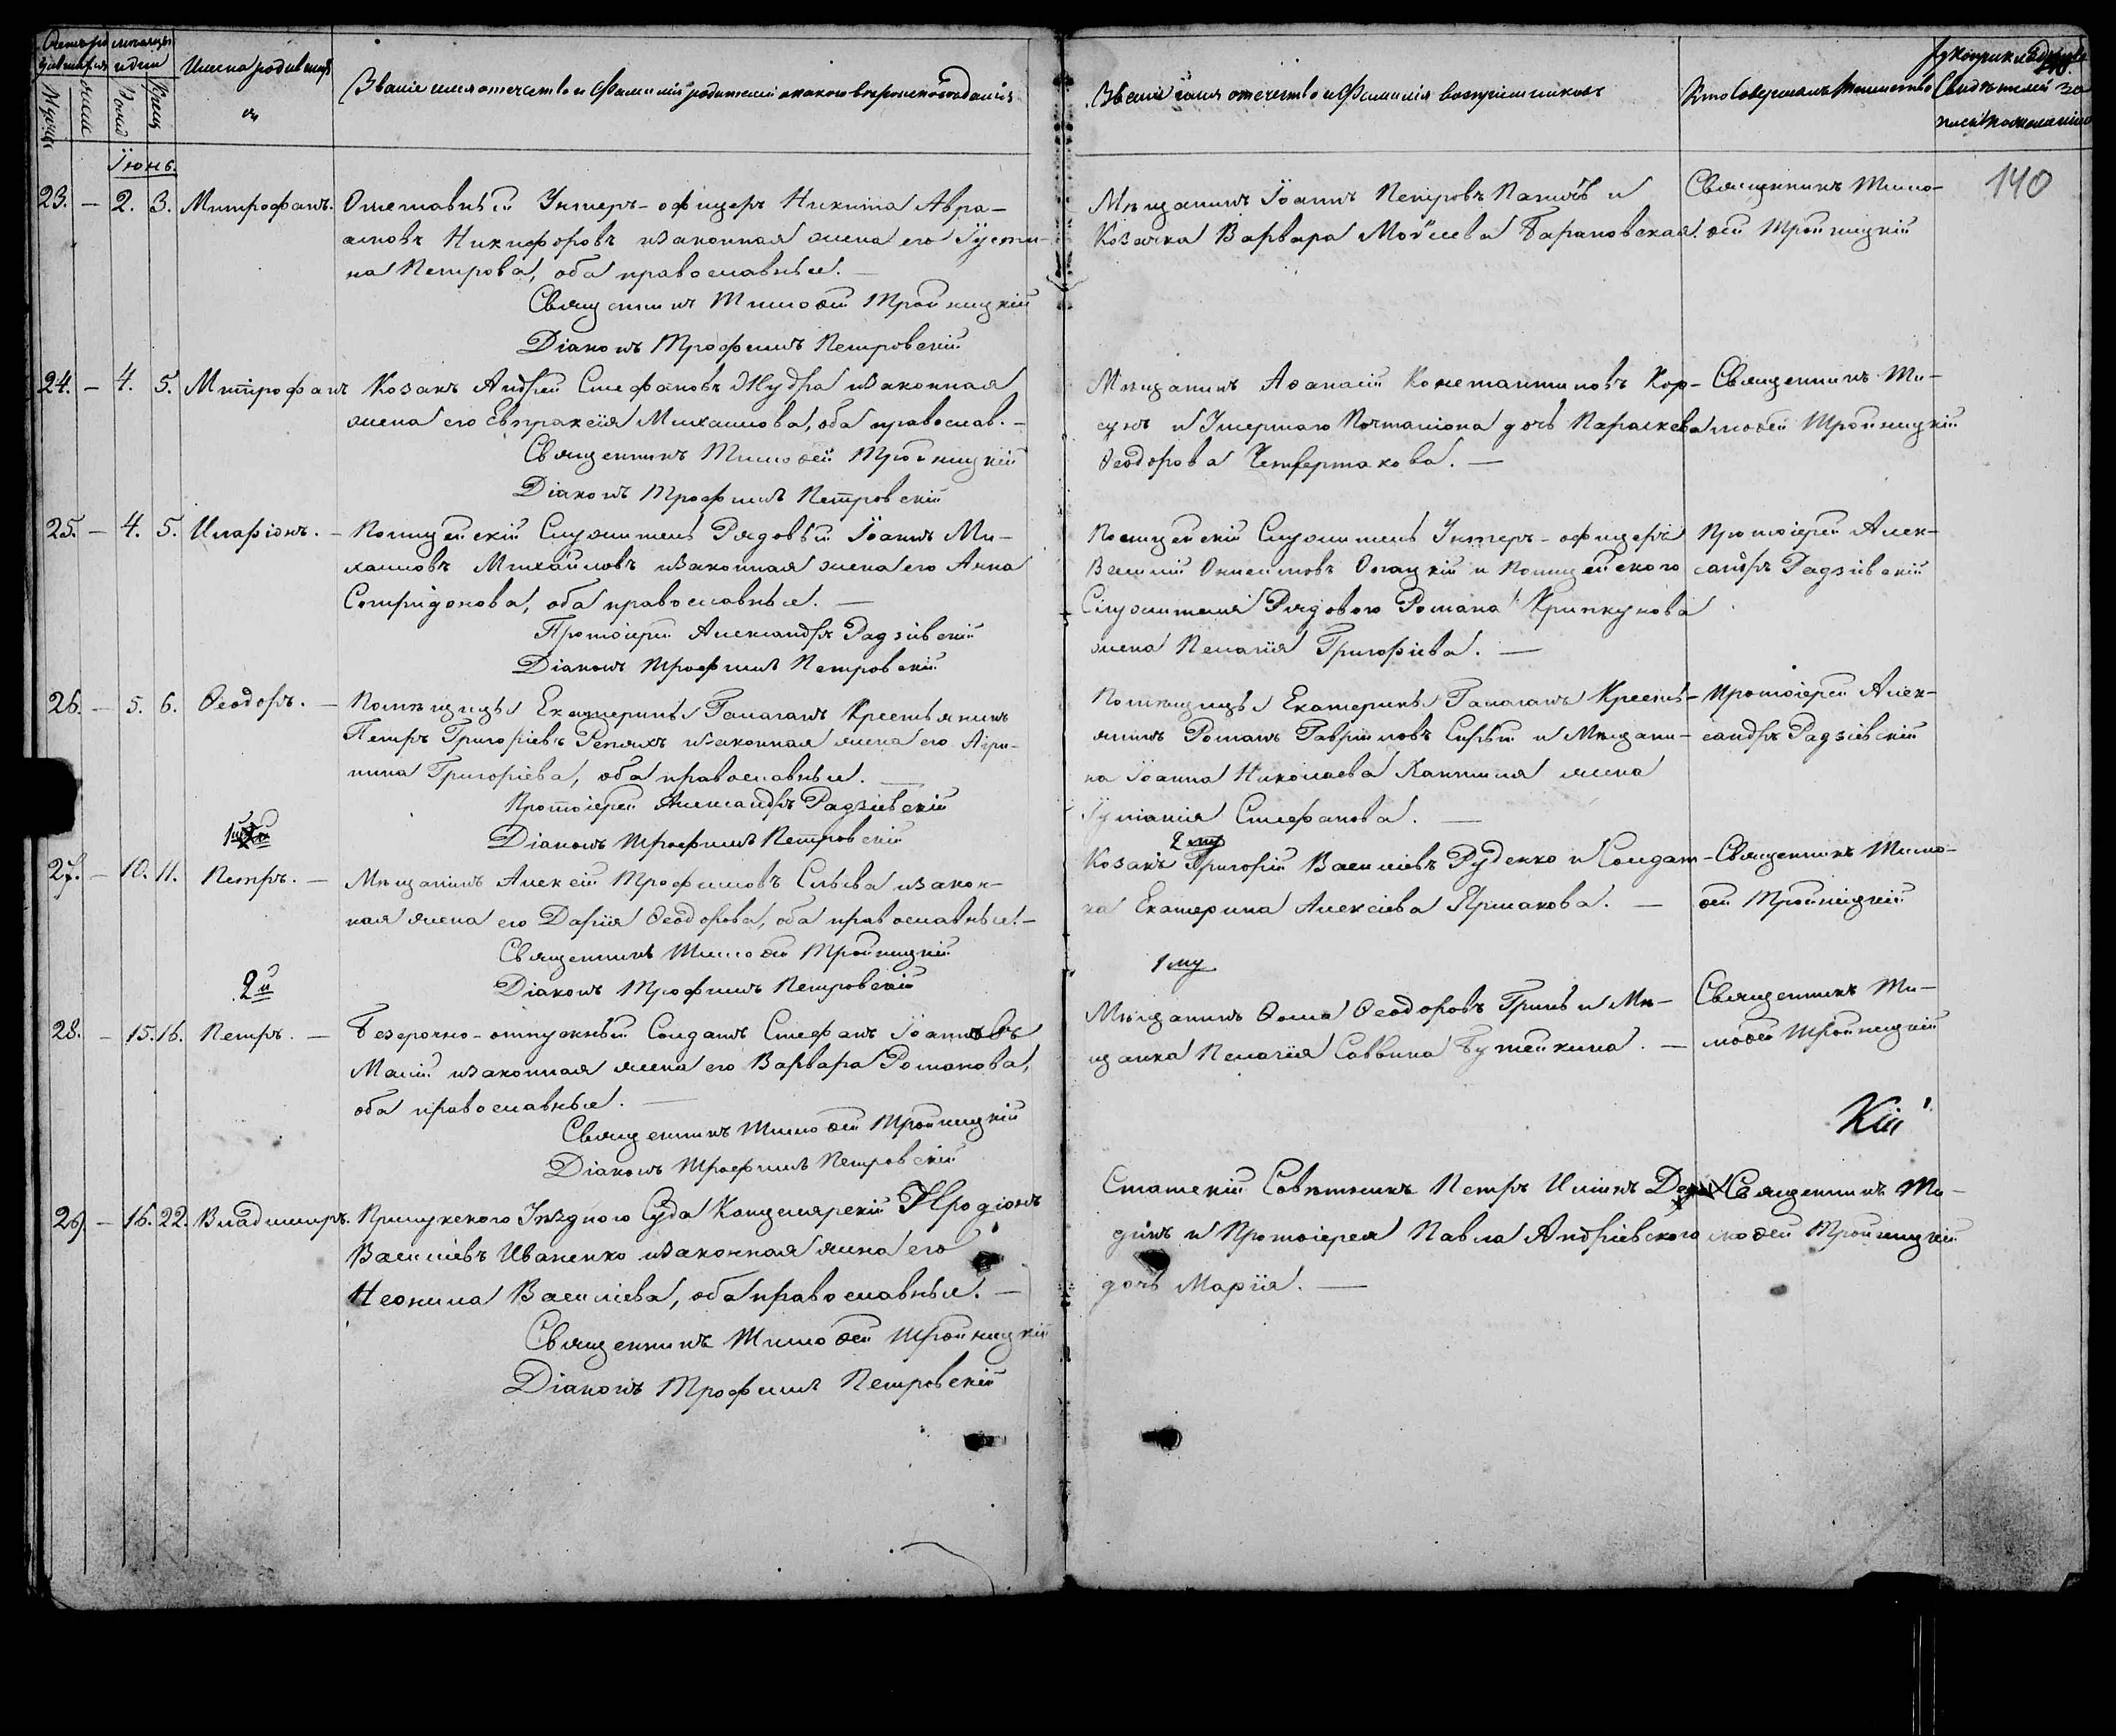 Имена родившихся
Званіе имя отчество и фамилія родителей и какого вѣроисповѣданія
Званіе имя отчество и фамилія воспріемниковъ
Кто совершалъ таинство
Іюнь.
140
23. – 2. 3. Митрофанъ. Отставный Унтеръ-офицеръ Никита Авра-
амовъ Никифоровъ и законная жена его Іусти-
на Петрова, оба православные. –
Священникъ Тимоѳей Тройницкій
Діаконъ Трофимъ Петровскій
Мѣщанинъ Іоаннъ Петровъ и
Козачка Варвара Моѵсіева Барановская.
Священникъ Тимо-
ѳей Тройницкій
24. – 4. 5. Митрофанъ Козакъ Андрей Стефановъ Жудра и законная
жена его Евпраксія Михаилова, оба православ. –
Священникъ Тимоѳей Тройницкій
Діаконъ Трофимъ Петровскій
Мѣщанинъ Аѳанасій Константиновъ Кор-
сунъ и Умершаго Почталіона дочь Параскева
Ѳеодорова Четвертакова. –
Священникъ Ти-
моѳей Тройницкій
25. – 4. 5. Иларіонъ. – Полицейскій Служитель Рядовый Іоаннъ Ми-
хаиловъ Михайловъ и законная жена его Анна
Спиридонова, оба православные. –
Протоіерей Александръ Радзіевскій
Діаконъ Трофимъ Петровскій
Полицейскій Служитель Унтеръ-офицеръ
Василій Онисимовъ и Полицейского
Служителя Рядового Романа Крипкунова
жена Пелагія Григоріева. –
Протоіерей Алек-
сандръ Радзіевскій
26. – 5. 6. Ѳеодоръ. – Помѣщицы Екатерины Галаганъ Крестьянинъ
Петръ Григоріевъ Репяхъ и законная жена его Агри-
пина Григоріева, оба православные. –
Протоіерей Александръ Радзіевскій
Діаконъ Трофимъ Петровскій
Помѣщицы Екатерины Галаганъ Кресть-
янинъ Романъ Гавриловъ Сирый и Мѣщани-
на Іоанна Николаева жена
Іуліанія Стефанова. –
Протоіерей Алек-
сандръ Радзіевскій
1й
27. – 10. 11. Петръ. – Мѣщанинъ Алексій Трофимовъ и закон-
ная жена его Дарія Ѳеодорова, оба православные. –
Священникъ Тимоѳей Тройницкій
Діаконъ Трофимъ Петровскій
2му
Козакъ Григорій Василіевъ Руденко и Солдат-
ка Екатерина Алексіева Ярмакова. –
Священникъ Тимо-
ѳей Тройницкій
2й
28. – 15. 16. Петръ. – Безсрочно-отпускный Солдатъ Стефанъ Іоанновъ
Малій и законная жена его Варвара Романова,
оба православные. –
Священникъ Тимоѳей Тройницкій
Діаконъ Трофимъ Петровскій
1му
Мѣщанинъ Ѳома Ѳеодоровъ Гринь и Мѣ-
щанка Пелагія Саввина Бутейкина. –
Священникъ Ти-
моѳей Тройницкій
Кій
29. – 16. 22. Владимиръ. Прилукского Уѣзднаго Суда Канцелярскій Иродіонъ
Василіевъ Иваненко и законная жена его
Неонила Василіева, оба православные. –
Священникъ Тимоѳей Тройницкій
Діаконъ Трофимъ Петровскій
Статскій Совѣтникъ Петръ Илiинъ
и Протоіерея Павла Андріевского
дочь Марія. –
Священникъ Ти-
моѳей Тройницкій